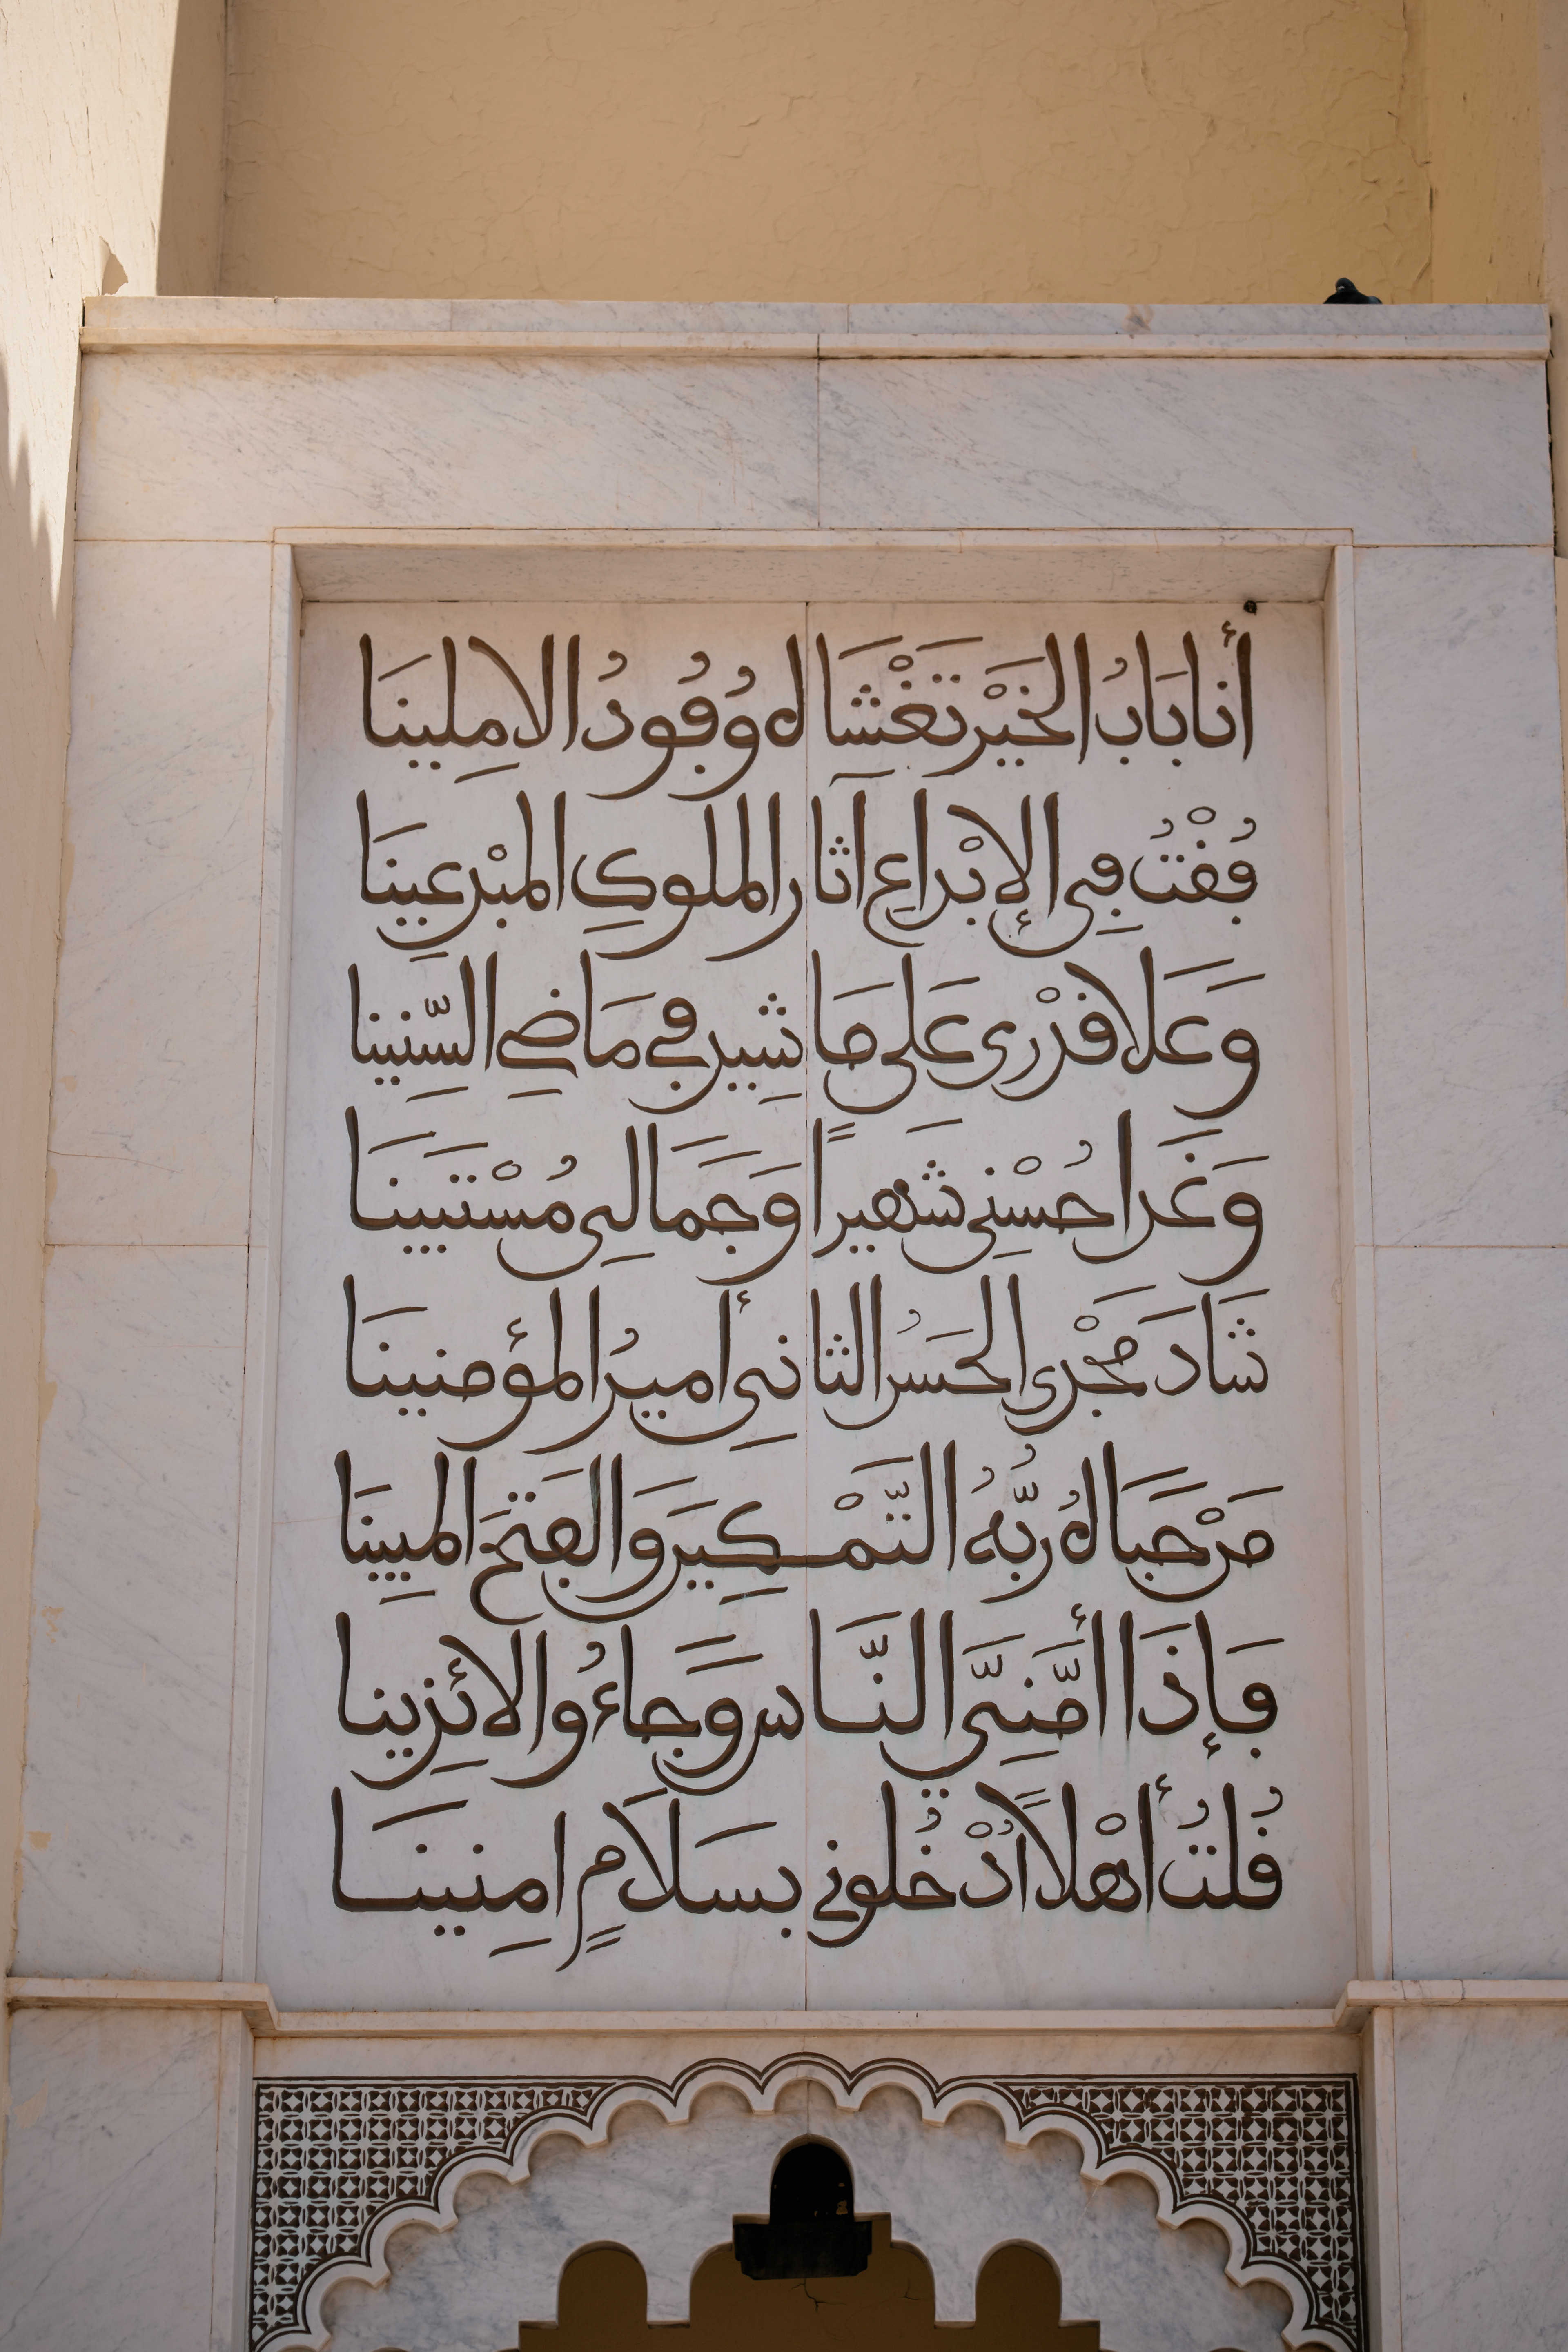 أنا بَابُ الخَيْرِ تَغْشَاهُ وُفُودُ الامِلِينَا
فُقْتُ فِي الإِبْدَاعِ آثَار الملوكِ المبْدِعِينَا
وَعَلَا قَدْرِى عَلَى مَا شِيد في مَاضِي السِّنِينا
وَغَدَا حُسْنِي شَهيراً وَجَمَالِي مُسْتَبِينَا
شَادَ مَجْدِى الحَسَنُ الثانِي أميرُ المؤمنينَا
مَرْحَبَا لهُ رَبُّهُ التَّمْكِينَ وَالفَتْحَ المبِينَا
فَإِذَا أَمَّنِيَ النَّاس وَجَاءُوا لائِذِينا
قُلتُ أَهْلاً اُدْخُلوني بسَلَامٍ امِنِينَا